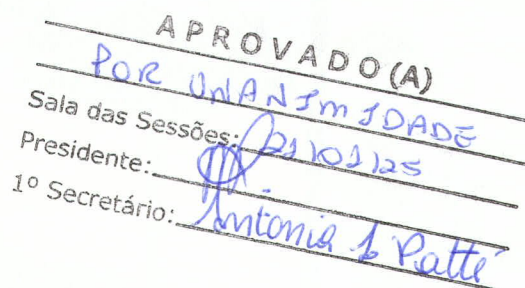 APROVADO(A)
POR UNANIMIDADE
Sala das Sessões: 21/01/25
Presidente:
1º Secretário: Antonia Patté